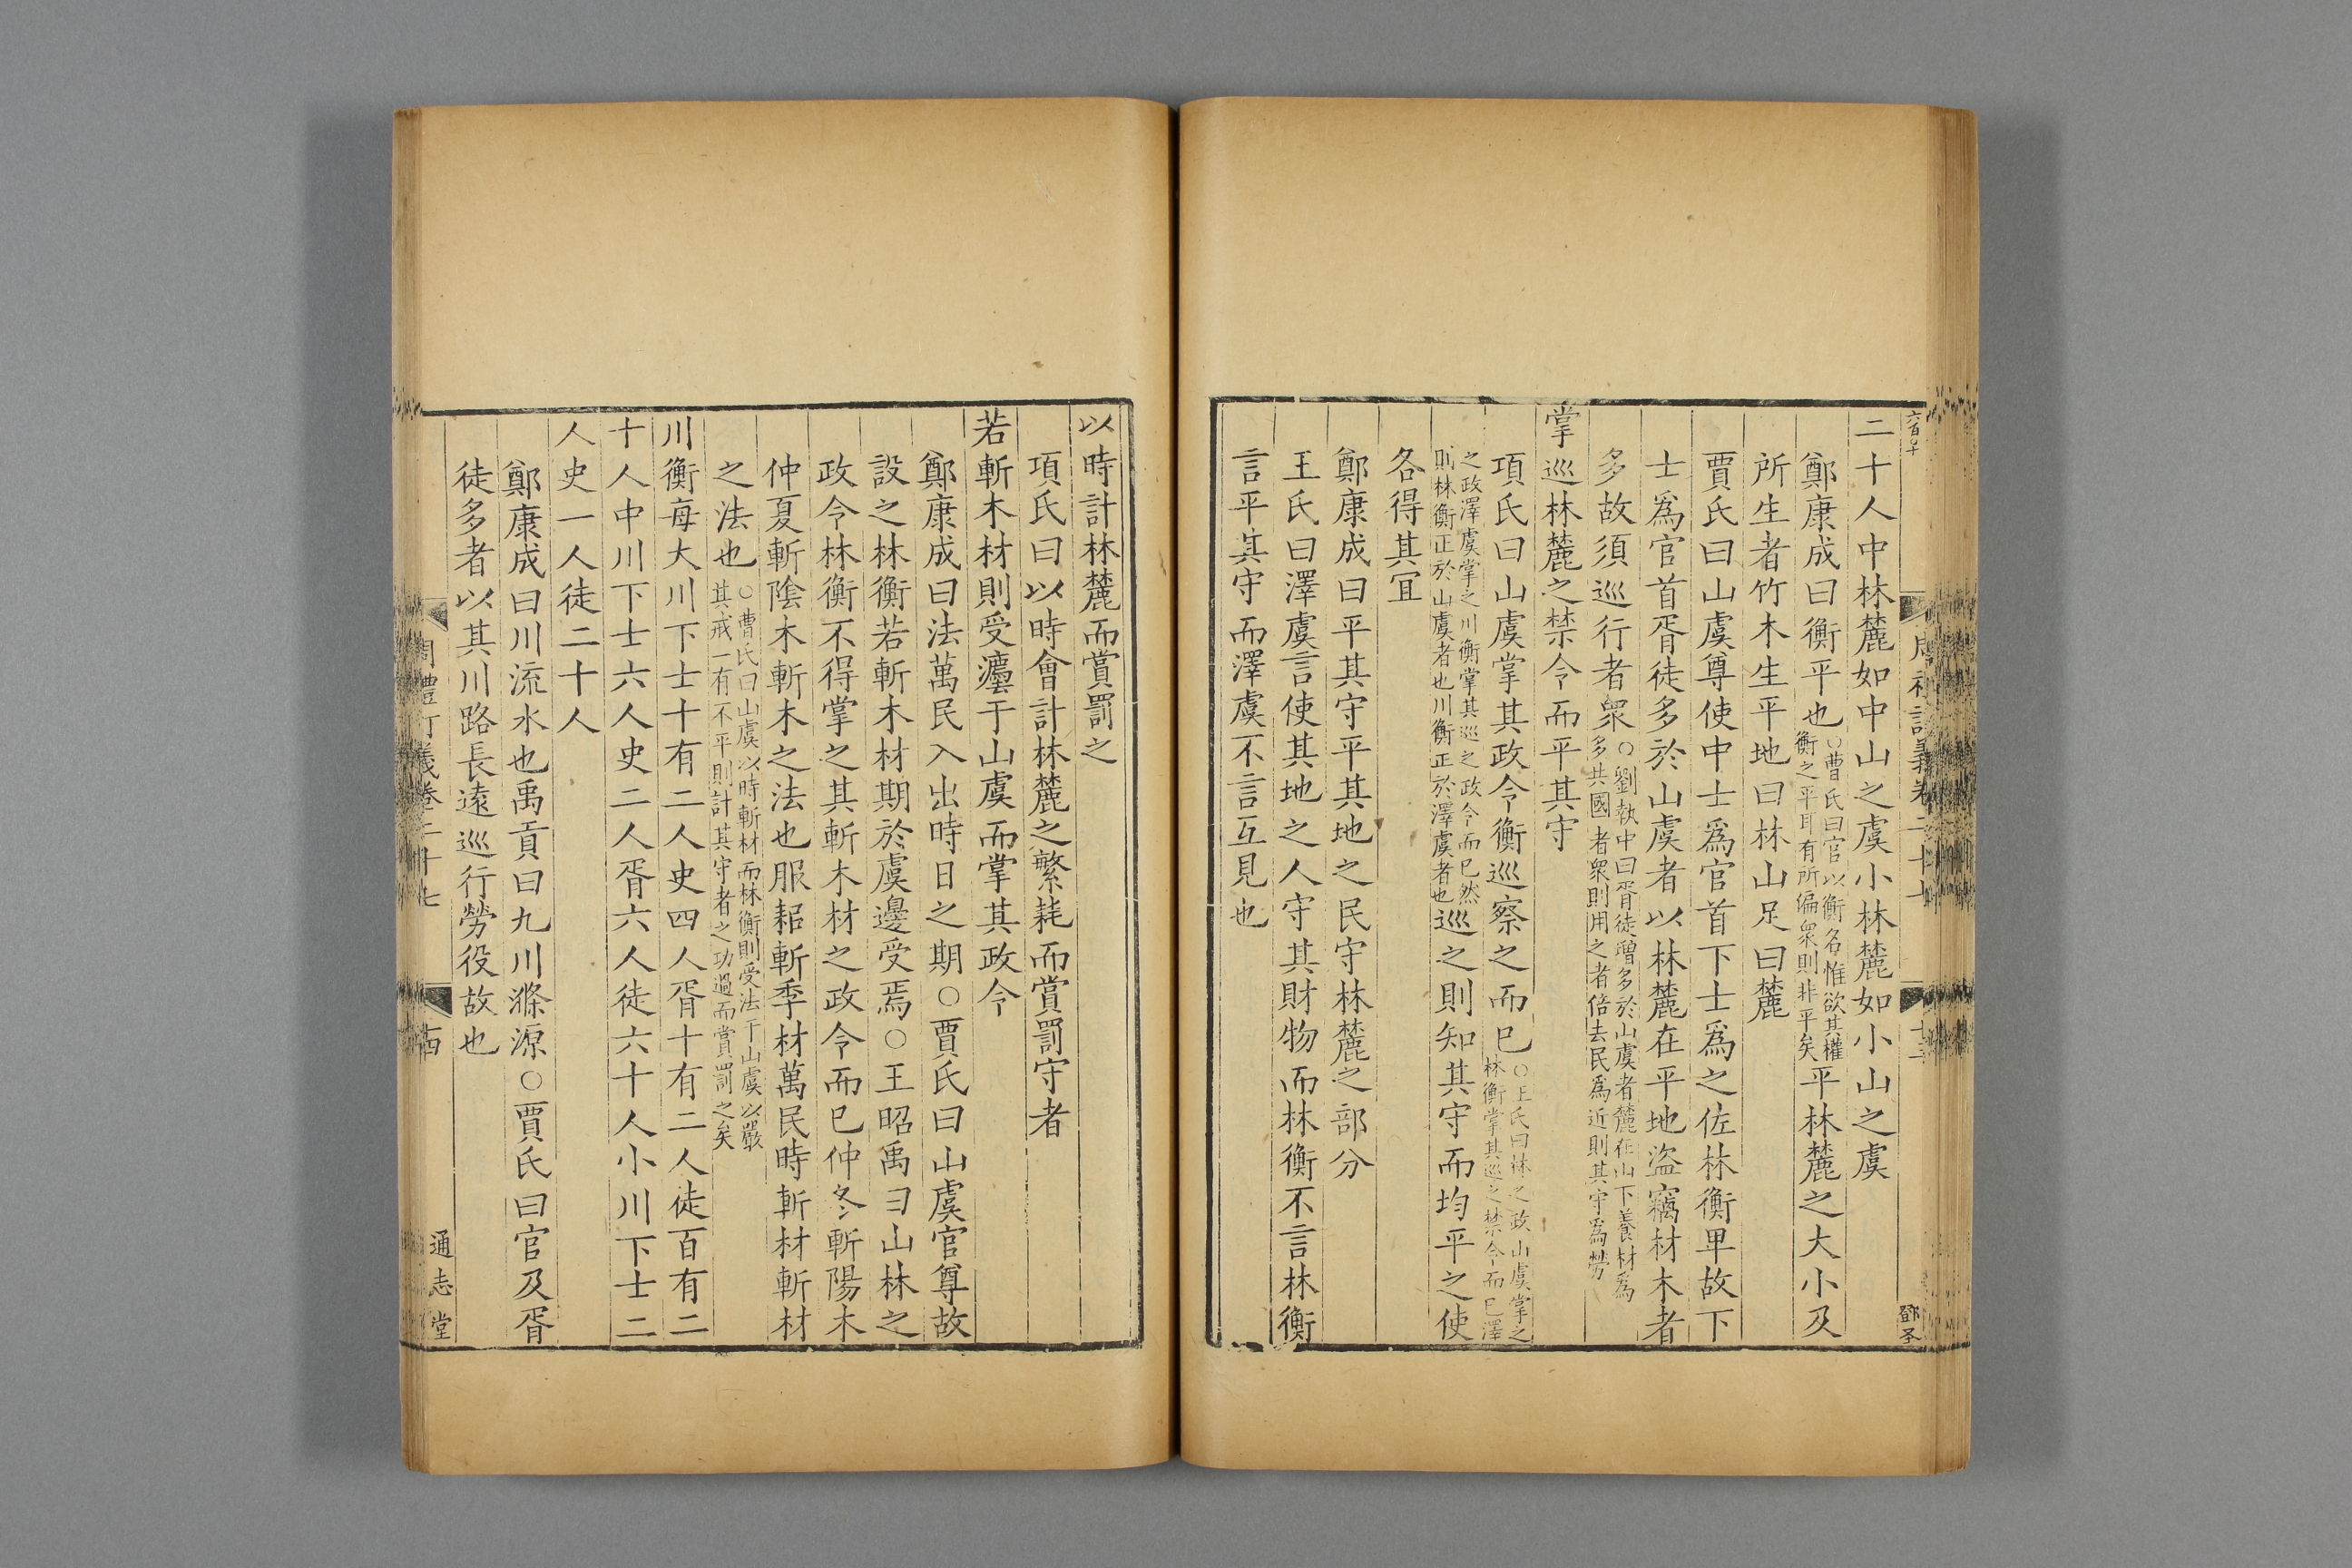 二十人中林麓如中山之虞小林麓如小山之虞
鄭康成曰衡平也○曹氏曰官以衡名惟欲其權衡之平耳有所偏衆則非平矣平林麓之大小及
所生者竹木生平地曰林山足曰麓
賈氏曰山虞尊使中士爲官首下士爲之佐林衡卑故下
士爲官首胥徒多於山虞者以林麓在平地盜竊材木者
多故須巡行者衆○劉執中曰胥徒增多於山虞者麓在山下養材爲多共國者衆則用之者倍去民爲近則其守爲勞
掌巡林麓之禁令而平其守
項氏曰山虞掌其政令衡巡察之而巳○王氏曰林之政山虞掌之林衡掌其巡之禁令而巳澤
之政澤虞掌之川衡掌其巡之政令而巳然則林衡正於山虞者也川衡正於澤虞者也巡之則知其守而均平之使
各得其宜
鄭康成曰平其守平其地之民守林麓之部分
王氏曰澤虞言使其地之人守其財物而林衡不言林衡
言平其守而澤虞不言互見也
鄧圣
以時計林麓而賞罰之
項氏曰以時會計林麓之繁耗而賞罰守者
若斬木材則受灋于山虞而掌其政令
鄭康成曰法萬民入出時日之期○賈氏曰山虞官尊故
設之林衡若斬木材期於虞邊受焉○王昭禹曰山林之
政令林衡不得掌之其斬木材之政令而巳仲冬斬陽木
仲夏斬陰木斬木之法也服耜斬季材萬民時斬材斬材
之法也○曹氏曰山虞以時斬材而林衡則受法于山虞以嚴其戒一有不平則計其守者之功過而賞罰之矣
川衡每大川下士十有二人史四人胥十有二人徒百有二
十人中川下士六人史二人胥六人徒六十人小川下士二
人史一人徒二十人
鄭康成曰川流水也禹貢曰九川滌源○賈氏曰官及胥
徒多者以其川路長遠巡行勞役故也
周禮訂義卷二十七
通志堂